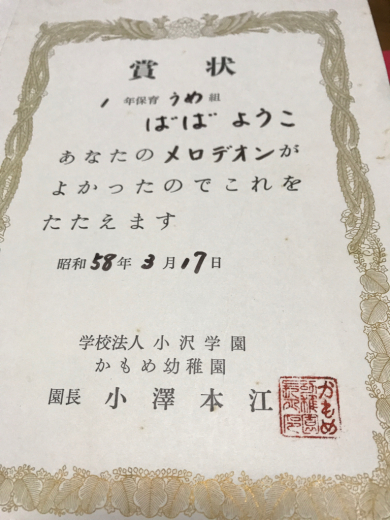 賞状
1年保育うめ組
ばばようこ
あなたのメロデオンが
よかったのでこれを
たたえます
昭和58年3月17日
学校法人小沢学園
かもめ幼稚園
園長 小澤本江
かもめ
幼稚園